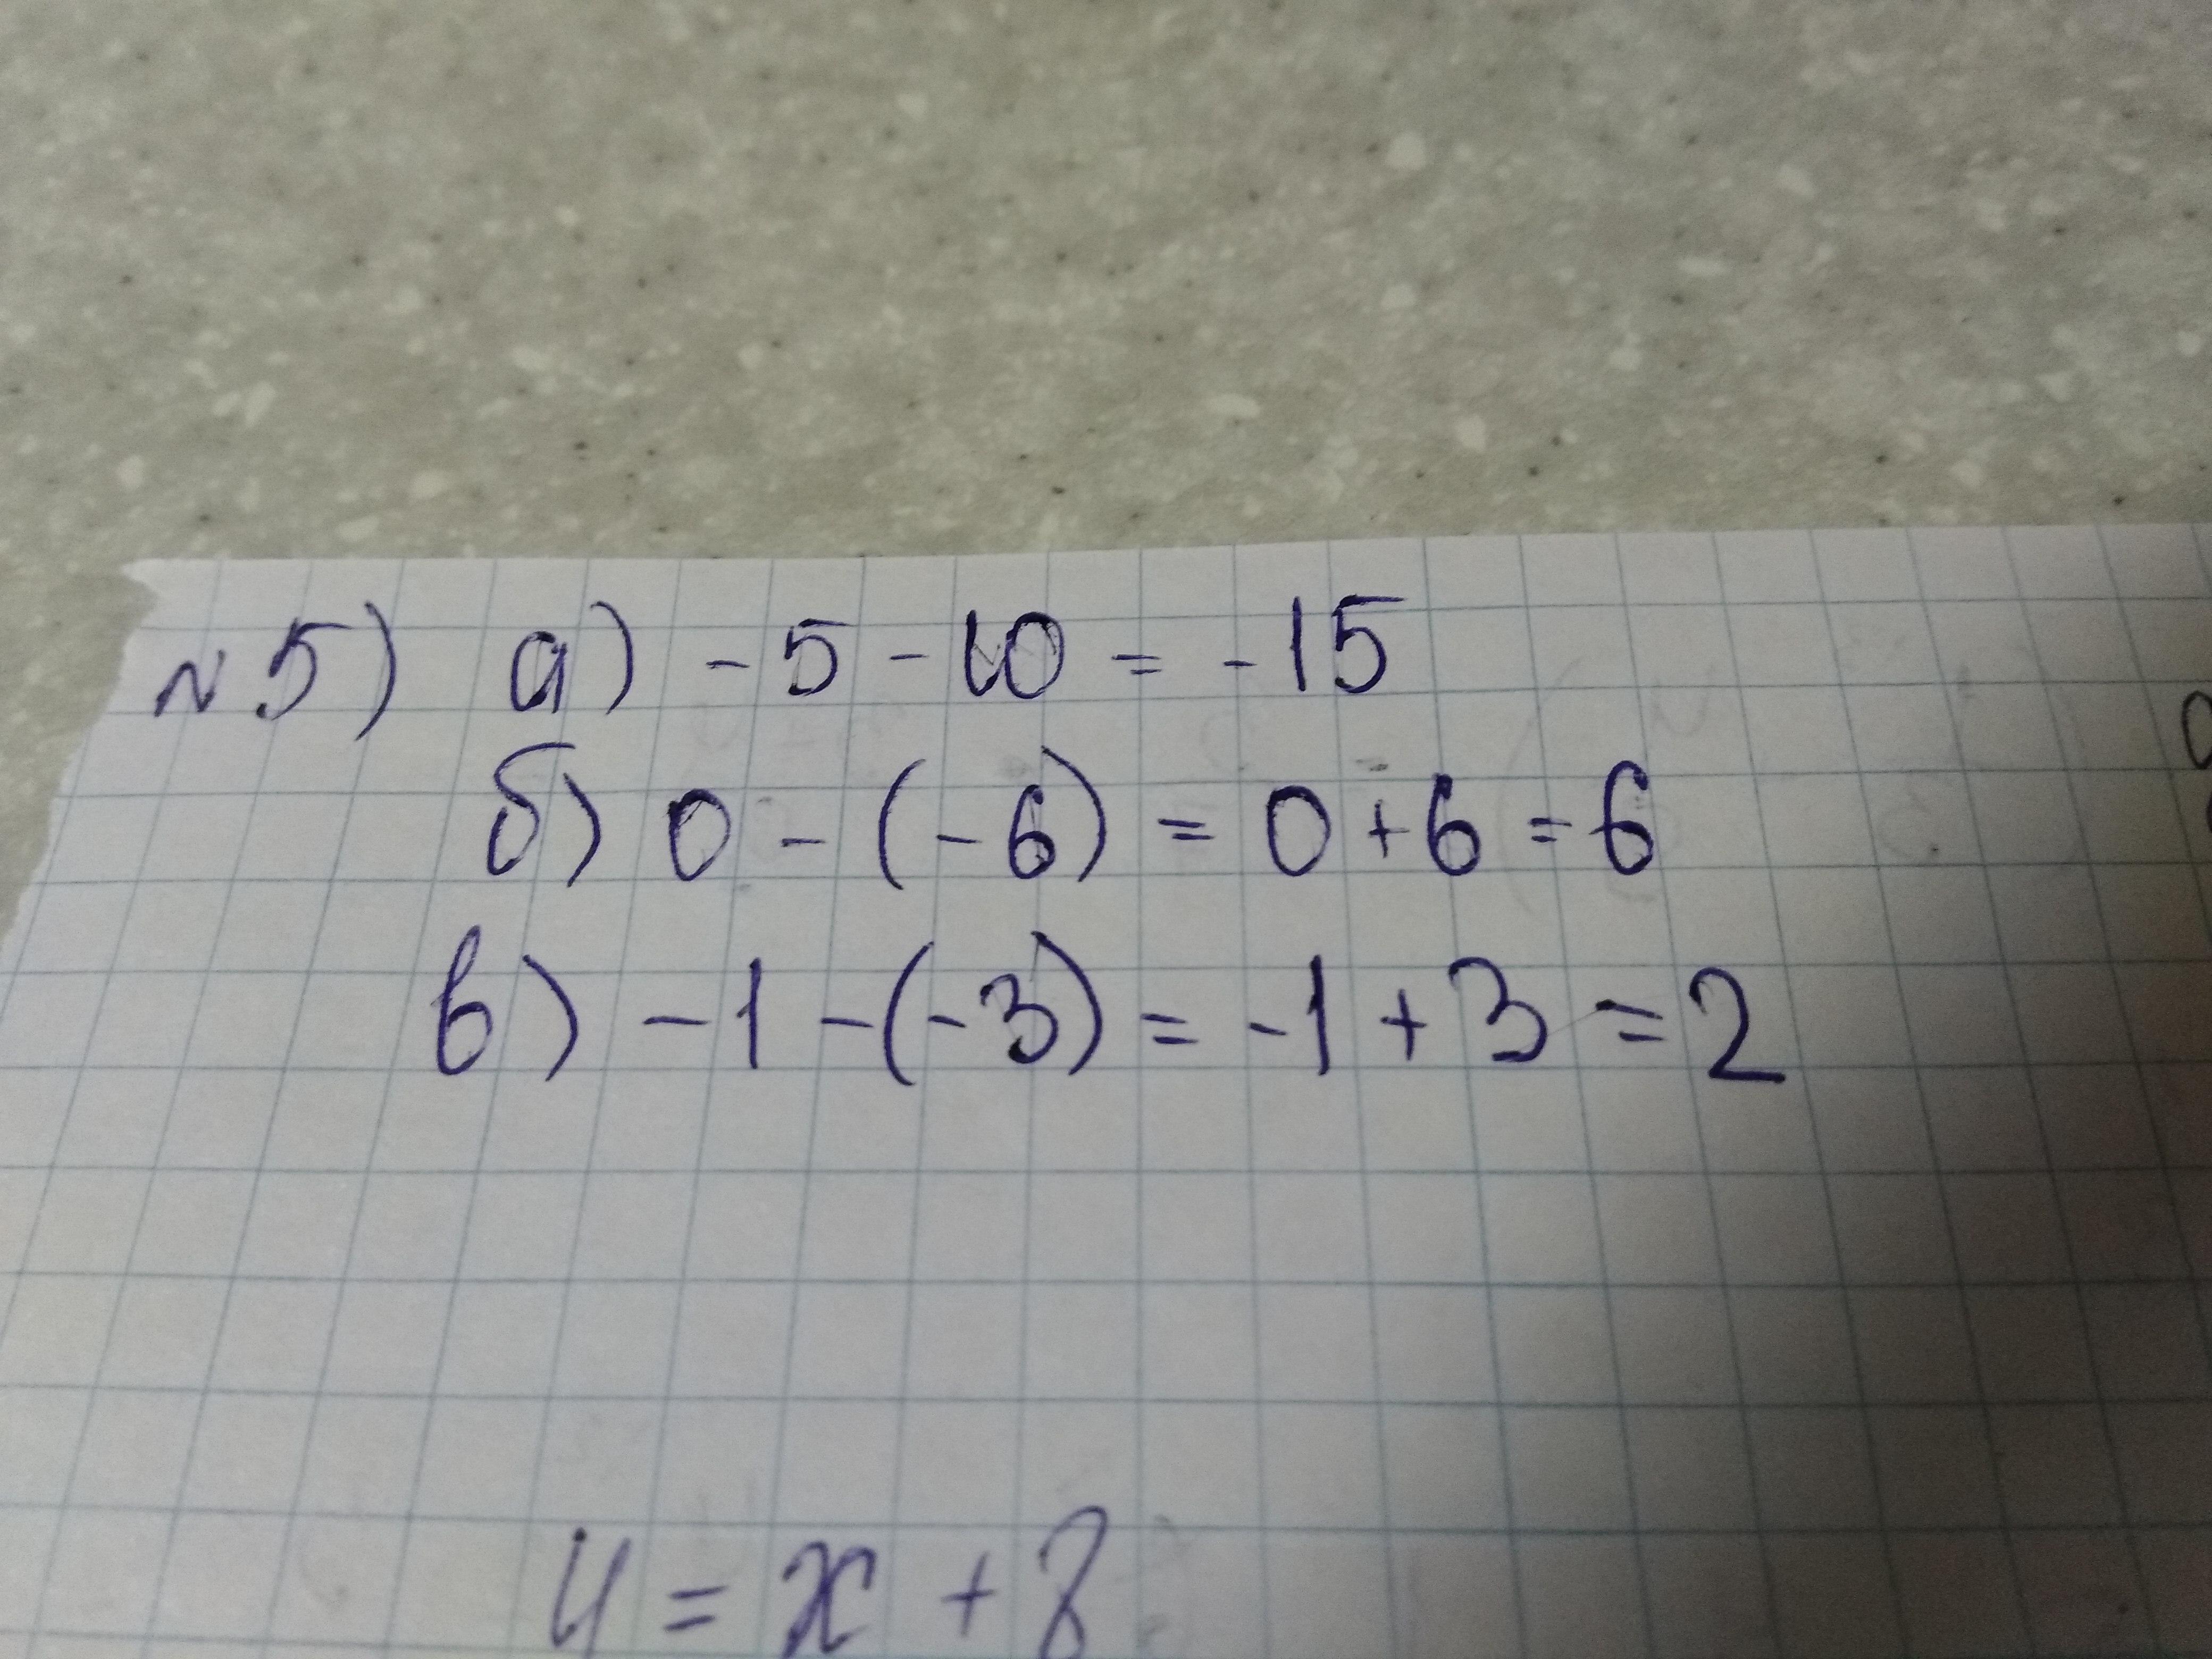 №5) а) -5-10 = -15
б) 0 - (-6) = 0+6 = 6
в) -1 -(-3) = -1 + 3 = 2
y = x + 8